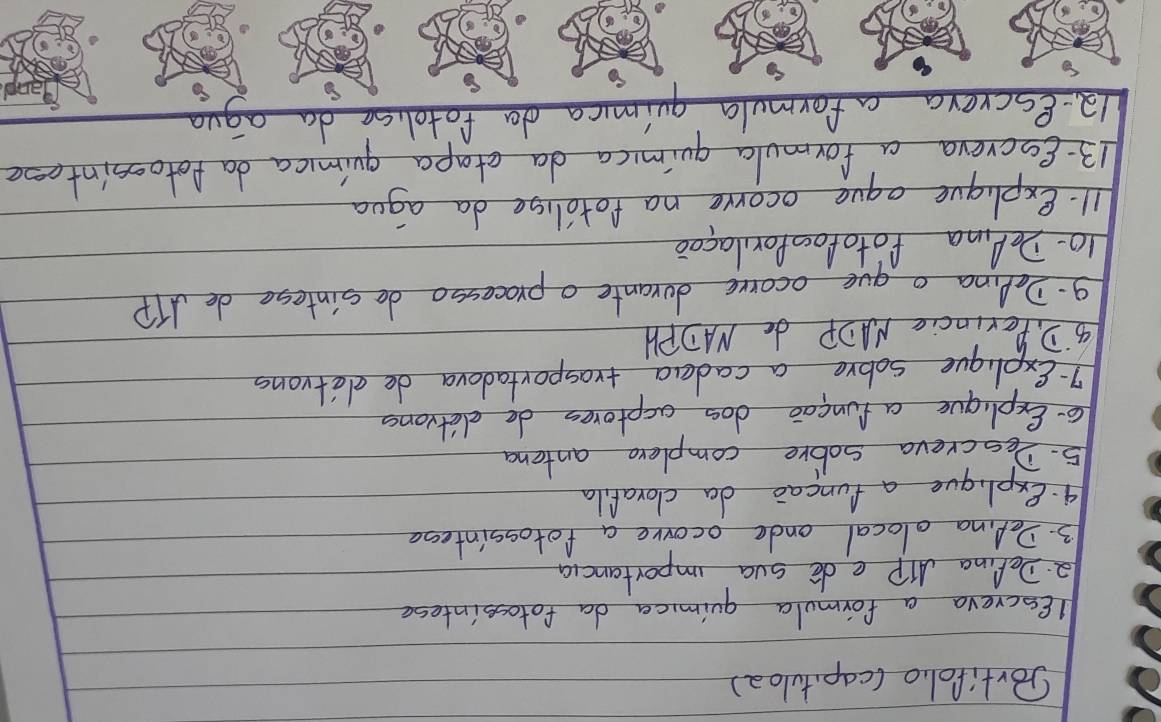 Portifolio (capitulo 2)
1 Escreva a fórmula química da fotossíntese
2- Defina ATP e dê sua importancia
3- Defina o local onde ocorre a fotossíntese
4- Explique a função da clorofila
5- Descreva sobre complexo antena
6- Explique a função dos acptores de elétrons
7- Explique sobre a cadeia trasportadora de elétrons
8 Diferincie NADP de NADPH
9- Defina o que ocorre durante o processo de síntese de ATP
10- Defina fotofosforilação
11- Explique oque ocorre na fotólise da água
13- Escreva a formula química da etapa química da fotossíntese
12- Escreva a formula química da fotolise da água